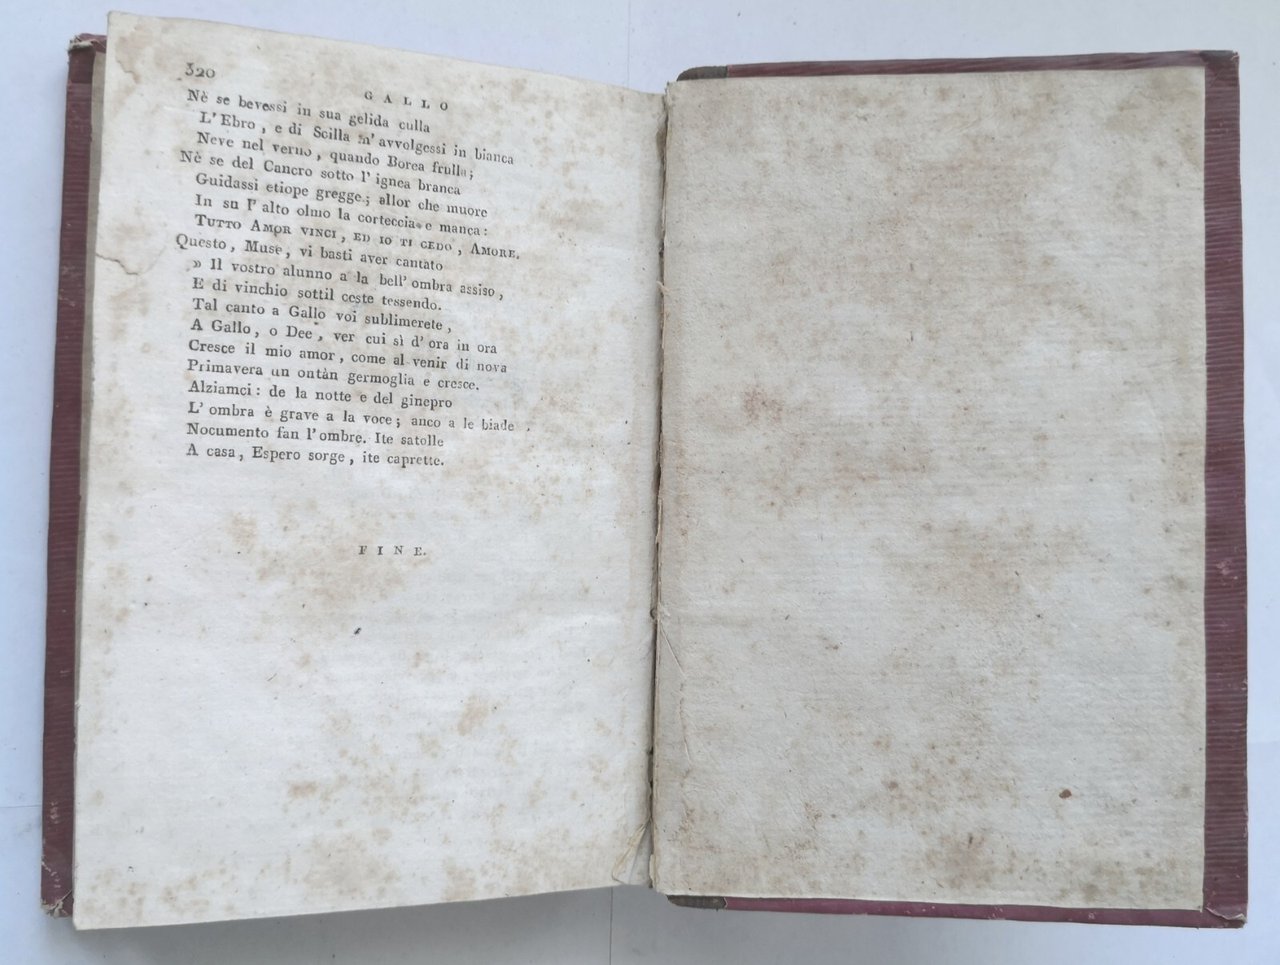 320
GALLO
Nè se bevessi in sua gelida culla
L'Ebro, e di Scilla m'avvolgessi in bianca
Neve nel verno, quando Borea frulla;
Nè se del Cancro sotto l'ignea branca
Guidassi etiope gregge; allor che muore
In su l'alto olmo la corteccia e manca:
TUTTO AMOR VINCI, ED IO TI CEDO, AMORE.
Questo, Muse, vi basti aver cantato
» Il vostro alunno a la bell'ombra assiso,
E di vinchio sottil ceste tessendo.
Tal canto a Gallo voi sublimerete,
A Gallo, o Dee, ver cui sì d'ora in ora
Cresce il mio amor, come al venir di nova
Primavera un ontàn germoglia e cresce.
Alziamci: de la notte e del ginepro
L'ombra è grave a la voce; anco a le biade
Nocumento fan l'ombre. Ite satolle
A casa, Espero sorge, ite caprette.
FINE.